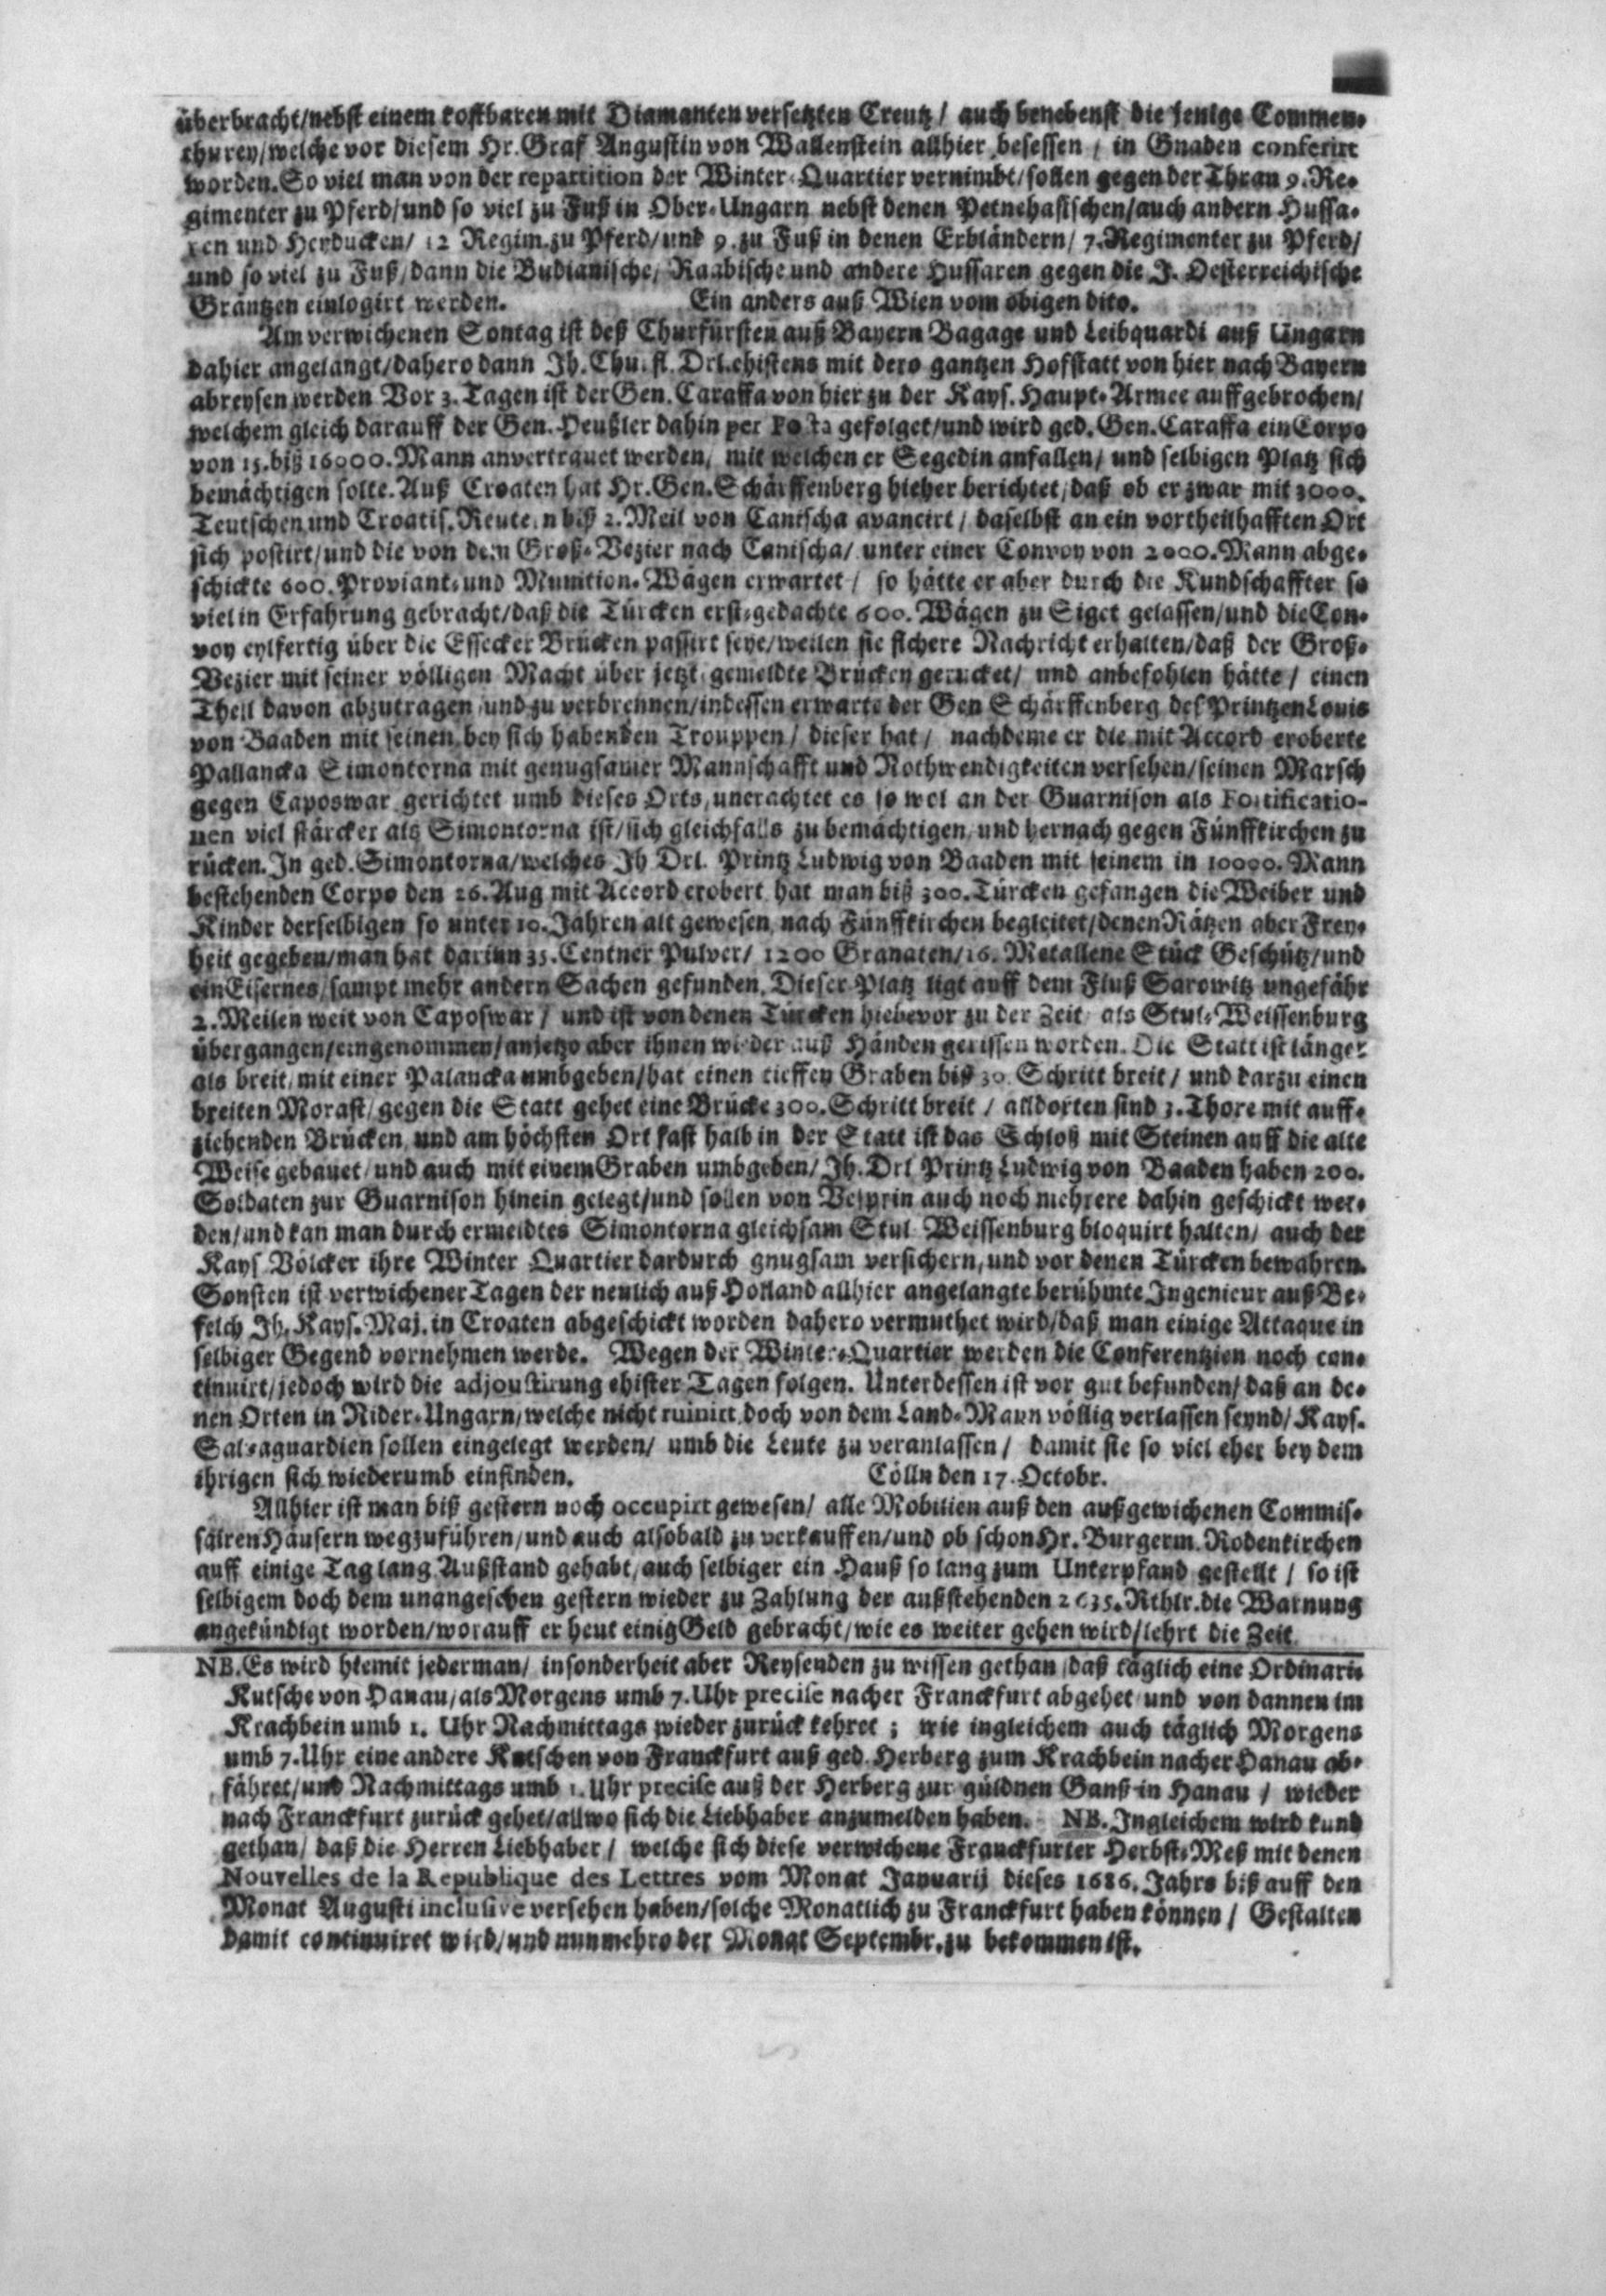 überbracht/nebst einem kostbaren mit Diamanten versetzten Creutz/ auch benebenst die jenige Commen-
thurey/welche vor diesem Hr. Graf Augustin von Wallenstein allhier besessen/ in Gnaden conferirt
worden. So viel man von der repartition der Winter-Quartier vernimbt/sollen gegen der Thran 9. Re-
gimenter zu Pferd/und so viel zu Fuß in Ober-Ungarn nebst denen Petnehasischen/auch andern Hussa-
ren und Heyducken/ 12 Regim. zu Pferd/und 9. zu Fuß in denen Erbländern/ 7. Regimenter zu Pferd/
und so viel zu Fuß/dann die Budianische/ Raabische und andere Hussaren gegen die J. Oesterreichische
Gräntzen einlogirt werden. Ein anders auß Wien vom obigen dito.
Am verwichenen Sontag ist deß Churfürsten auß Bayern Bagage und Leibquardi auß Ungarn
dahier angelangt/dahero dann Jh. Churfl. Drl. ehistens mit dero gantzen Hofstatt von hier nach Bayern
abreysen werden Vor 3. Tagen ist der Gen. Caraffa von hier zu der Kays. Haupt-Armee auffgebrochen/
welchem gleich darauff der Gen. Heußler dahin per Posta gefolget/und wird ged. Gen. Caraffa ein Corpo
von 15. biß 16000. Mann anvertrauet werden/ mit welchen er Segedin anfallen/ und selbigen Platz sich
bemächtigen solte. Auß Croaten hat Hr. Gen. Schärffenberg hieher berichtet/daß ob er zwar mit 3000.
Teutschen und Croatis. Reutern biß 2. Meil von Canischa avancirt/ daselbst an ein vortheilhafften Ort
sich postirt/und die von dem Groß-Vezier nach Canischa/ unter einer Convoy von 2000. Mann abge-
schickte 600. Proviant-und Munition-Wägen erwartet/ so hätte er aber durch die Kundschaffter so
viel in Erfahrung gebracht/daß die Türcken erst-gedachte 600. Wägen zu Siget gelassen/und die Con-
voy eylfertig über die Essecker Brücken passirt seye/weilen sie sichere Nachricht erhalten/daß der Groß-
Vezier mit seiner völligen Macht über jetzt-gemeldte Brücken gerucket/ und anbefohlen hätte/ einen
Theil davon abzutragen/und zu verbrennen/indessen erwarte der Gen Schärffenberg des Printzen Louis
von Baaden mit seinen bey sich habenden Trouppen/ dieser hat/ nachdeme er die mit Accord eroberte
Pallancka Simontorna mit genugsamer Mannschafft und Nothwendigkeiten versehen/seinen Marsch
gegen Caposwar gerichtet umb dieses Orts/unerachtet es so wol an der Guarnison als Fortificatio-
nen viel stärcker als Simontorna ist/sich gleichfalls zu bemächtigen/und hernach gegen Fünffkirchen zu
rücken. In ged. Simontorna/welches Jh Drl. Printz Ludwig von Baaden mit seinem in 10000. Mann
bestehenden Corpo den 26. Aug mit Accord erobert hat man biß 300. Türcken gefangen die Weiber und
Kinder derselbigen so unter 10. Jahren alt gewesen nach Fünffkirchen begleitet/denen Rätzen aber Frey-
heit gegeben/man hat darinn 35. Centner Pulver/ 1200 Granaten/16. Metallene Stück Geschütz/und
ein Eisernes/sampt mehr andern Sachen gefunden. Dieser Platz ligt auff dem Fluß Sarowitz ungefähr
2. Meilen weit von Caposwar/ und ist von denen Türcken hiebevor zu der Zeit als Stul-Weissenburg
übergangen/eingenommen/anjetzo aber ihnen wieder auß Händen gerissen worden. Die Statt ist länger
als breit/mit einer Palancka umbgeben/hat einen tieffen Graben biß 30. Schritt breit/ und darzu einen
breiten Morast/gegen die Statt gehet eine Brücke 300. Schritt breit/ alldorten sind 3. Thore mit auff-
ziehenden Brücken, und am höchsten Ort fast halb in der Statt ist das Schloß mit Steinen auff die alte
Weise gebauet/und auch mit einem Graben umbgeben/Jh. Drl Printz Ludwig von Baaden haben 200.
Soldaten zur Guarnison hinein gelegt/und sollen von Vesprin auch noch mehrere dahin geschickt wer-
den/und kan man durch ermeldtes Simontorna gleichsam Stul Weissenburg bloquirt halten/ auch der
Kays Völcker ihre Winter Quartier dardurch gnugsam versichern, und vor denen Türcken bewahren.
Sonsten ist verwichener Tagen der neulich auß Holland allhier angelangte berühmte Ingenieur auß Be-
felch Jh. Kays. Maj. in Croaten abgeschickt worden dahero vermuthet wird/daß man einige Attaque in
selbiger Gegend vornehmen werde. Wegen der Winter-Quartier werden die Conferentzien noch con-
tinuirt/jedoch wird die adjoustirung ehister Tagen folgen. Unterdessen ist vor gut befunden/daß an de-
nen Orten in Nider-Ungarn/welche nicht ruinirt doch von dem Land-Mann völlig verlassen seynd/ Kays.
Salvaguardien sollen eingelegt werden/ umb die Leute zu veranlassen/ damit sie so viel eher bey dem
ihrigen sich wiederumb einfinden. Cölln den 17. Octobr.
Allhier ist man biß gestern noch occupirt gewesen/ alle Mobilien auß den außgewichenen Commis-
sairen Häusern wegzuführen/und auch alsobald zu verkauffen/und ob schon Hr. Burgerm. Rodenkirchen
auff einige Tag lang Außstand gehabt/auch selbiger ein Hauß so lang zum Unterpfand gestellt/ so ist
selbigem doch dem unangesehen gestern wieder zu Zahlung der außstehenden 2635. Rthlr. die Warnung
angekündigt worden/worauff er heut einig Geld gebracht/wie es weiter gehen wird/lehrt die Zeit.
NB. Es wird hiemit jederman/ insonderheit aber Reysenden zu wissen gethan/daß täglich eine Ordinari-
Kutsche von Hanau/als Morgens umb 7. Uhr precise nacher Franckfurt abgehet und von dannen im
Krachbein umb 1. Uhr Nachmittags wieder zurück kehret; wie ingleichem auch täglich Morgens
umb 7. Uhr eine andere Kutschen von Franckfurt auß ged. Herberg zum Krachbein nacher Hanau ab-
fähret/und Nachmittags umb 1. Uhr precise auß der Herberg zur güldnen Ganß in Hanau/ wieder
nach Franckfurt zurück gehet/allwo sich die Liebhaber anzumelden haben. NB. Ingleichem wird kund
gethan/ daß die Herren Liebhaber/ welche sich diese verwichene Franckfurter Herbst-Meß mit denen
Nouvelles de la Republique des Lettres vom Monat Januarij dieses 1686. Jahrs biß auff den
Monat Augusti inclusive versehen haben/solche Monatlich zu Franckfurt haben können/ Gestalten
damit continuiret wird/und nunmehro der Monat Septembr. zu bekommen ist.